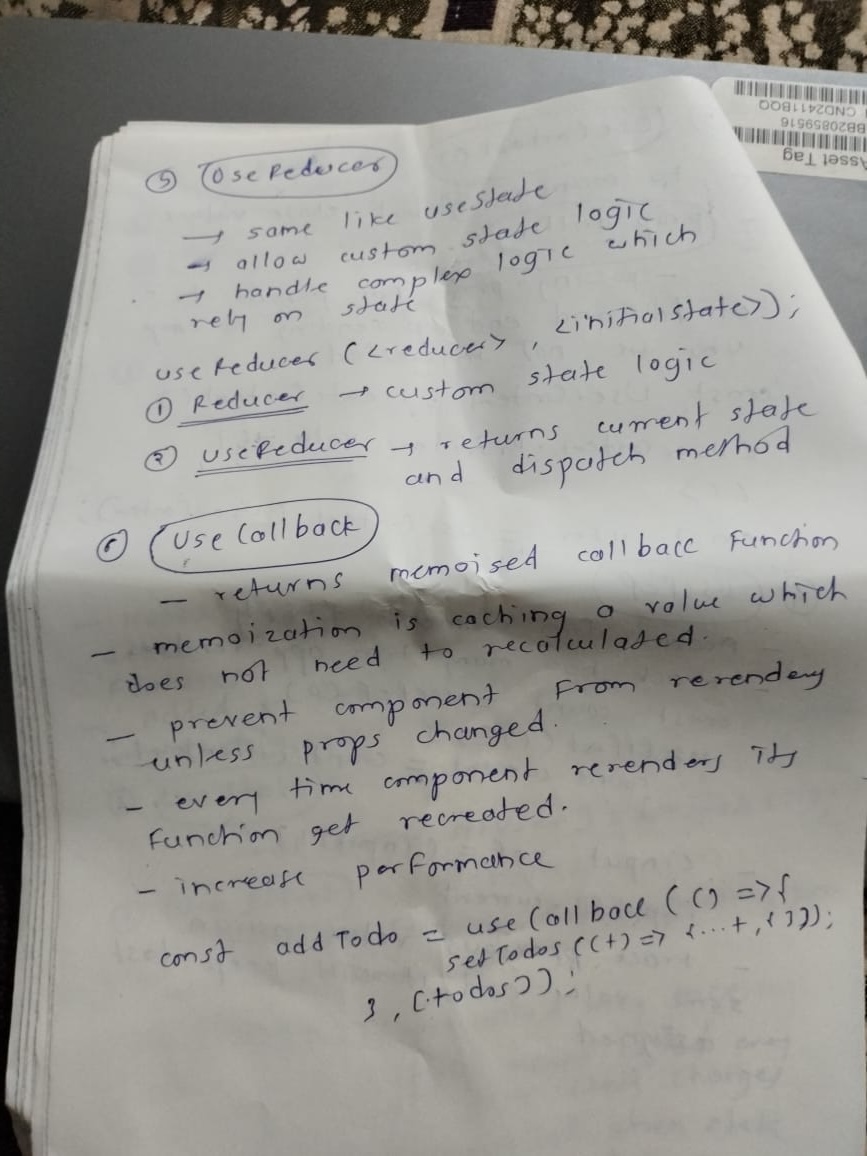 Asset Tag
BB20859516
CND2411BQQ
⑤ UseReducer
→ same like useState
→ allow custom state logic
→ handle complex logic which
rely on state
useReducer (<reducer>, <initialstate>);
① Reducer → custom state logic
② useReducer → returns current state
and dispatch method
⑥ Use Callback
— returns memoised callback Function
— memoization is caching a value which
does not need to recalculated.
— prevent component From rerendery
unless props changed.
— every time component rerenders its
Function get recreated.
— increase performance
const addTodo = useCallback (() => {
setTodos ((t) => {...t, { }});
}, [todos]);